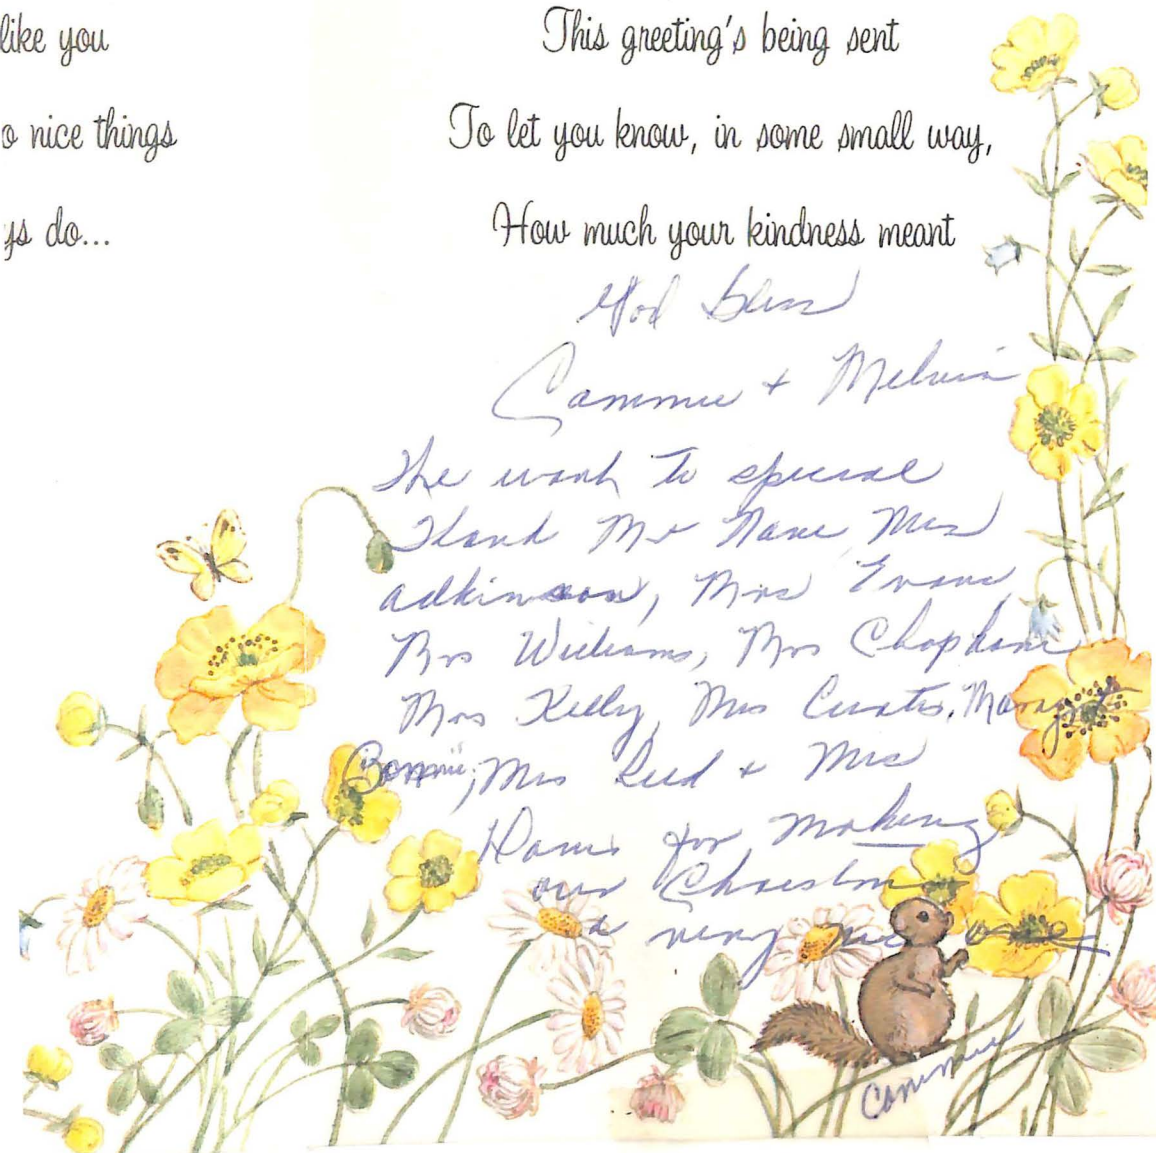 like you
o nice things
ys do...
This greeting's being sent
To let you know, in some small way,
How much your kindness meant
God Bless
Cammie + Melvin
The want to special
Thank Mr Mrs
adkinson, Mrs Evans
Mrs Williams, Mrs
Mrs Kelly, Mrs Curtis, Margret
Bonnie, Mrs Reed + Mrs
for making
our Christmas
a very nice one
Cammie